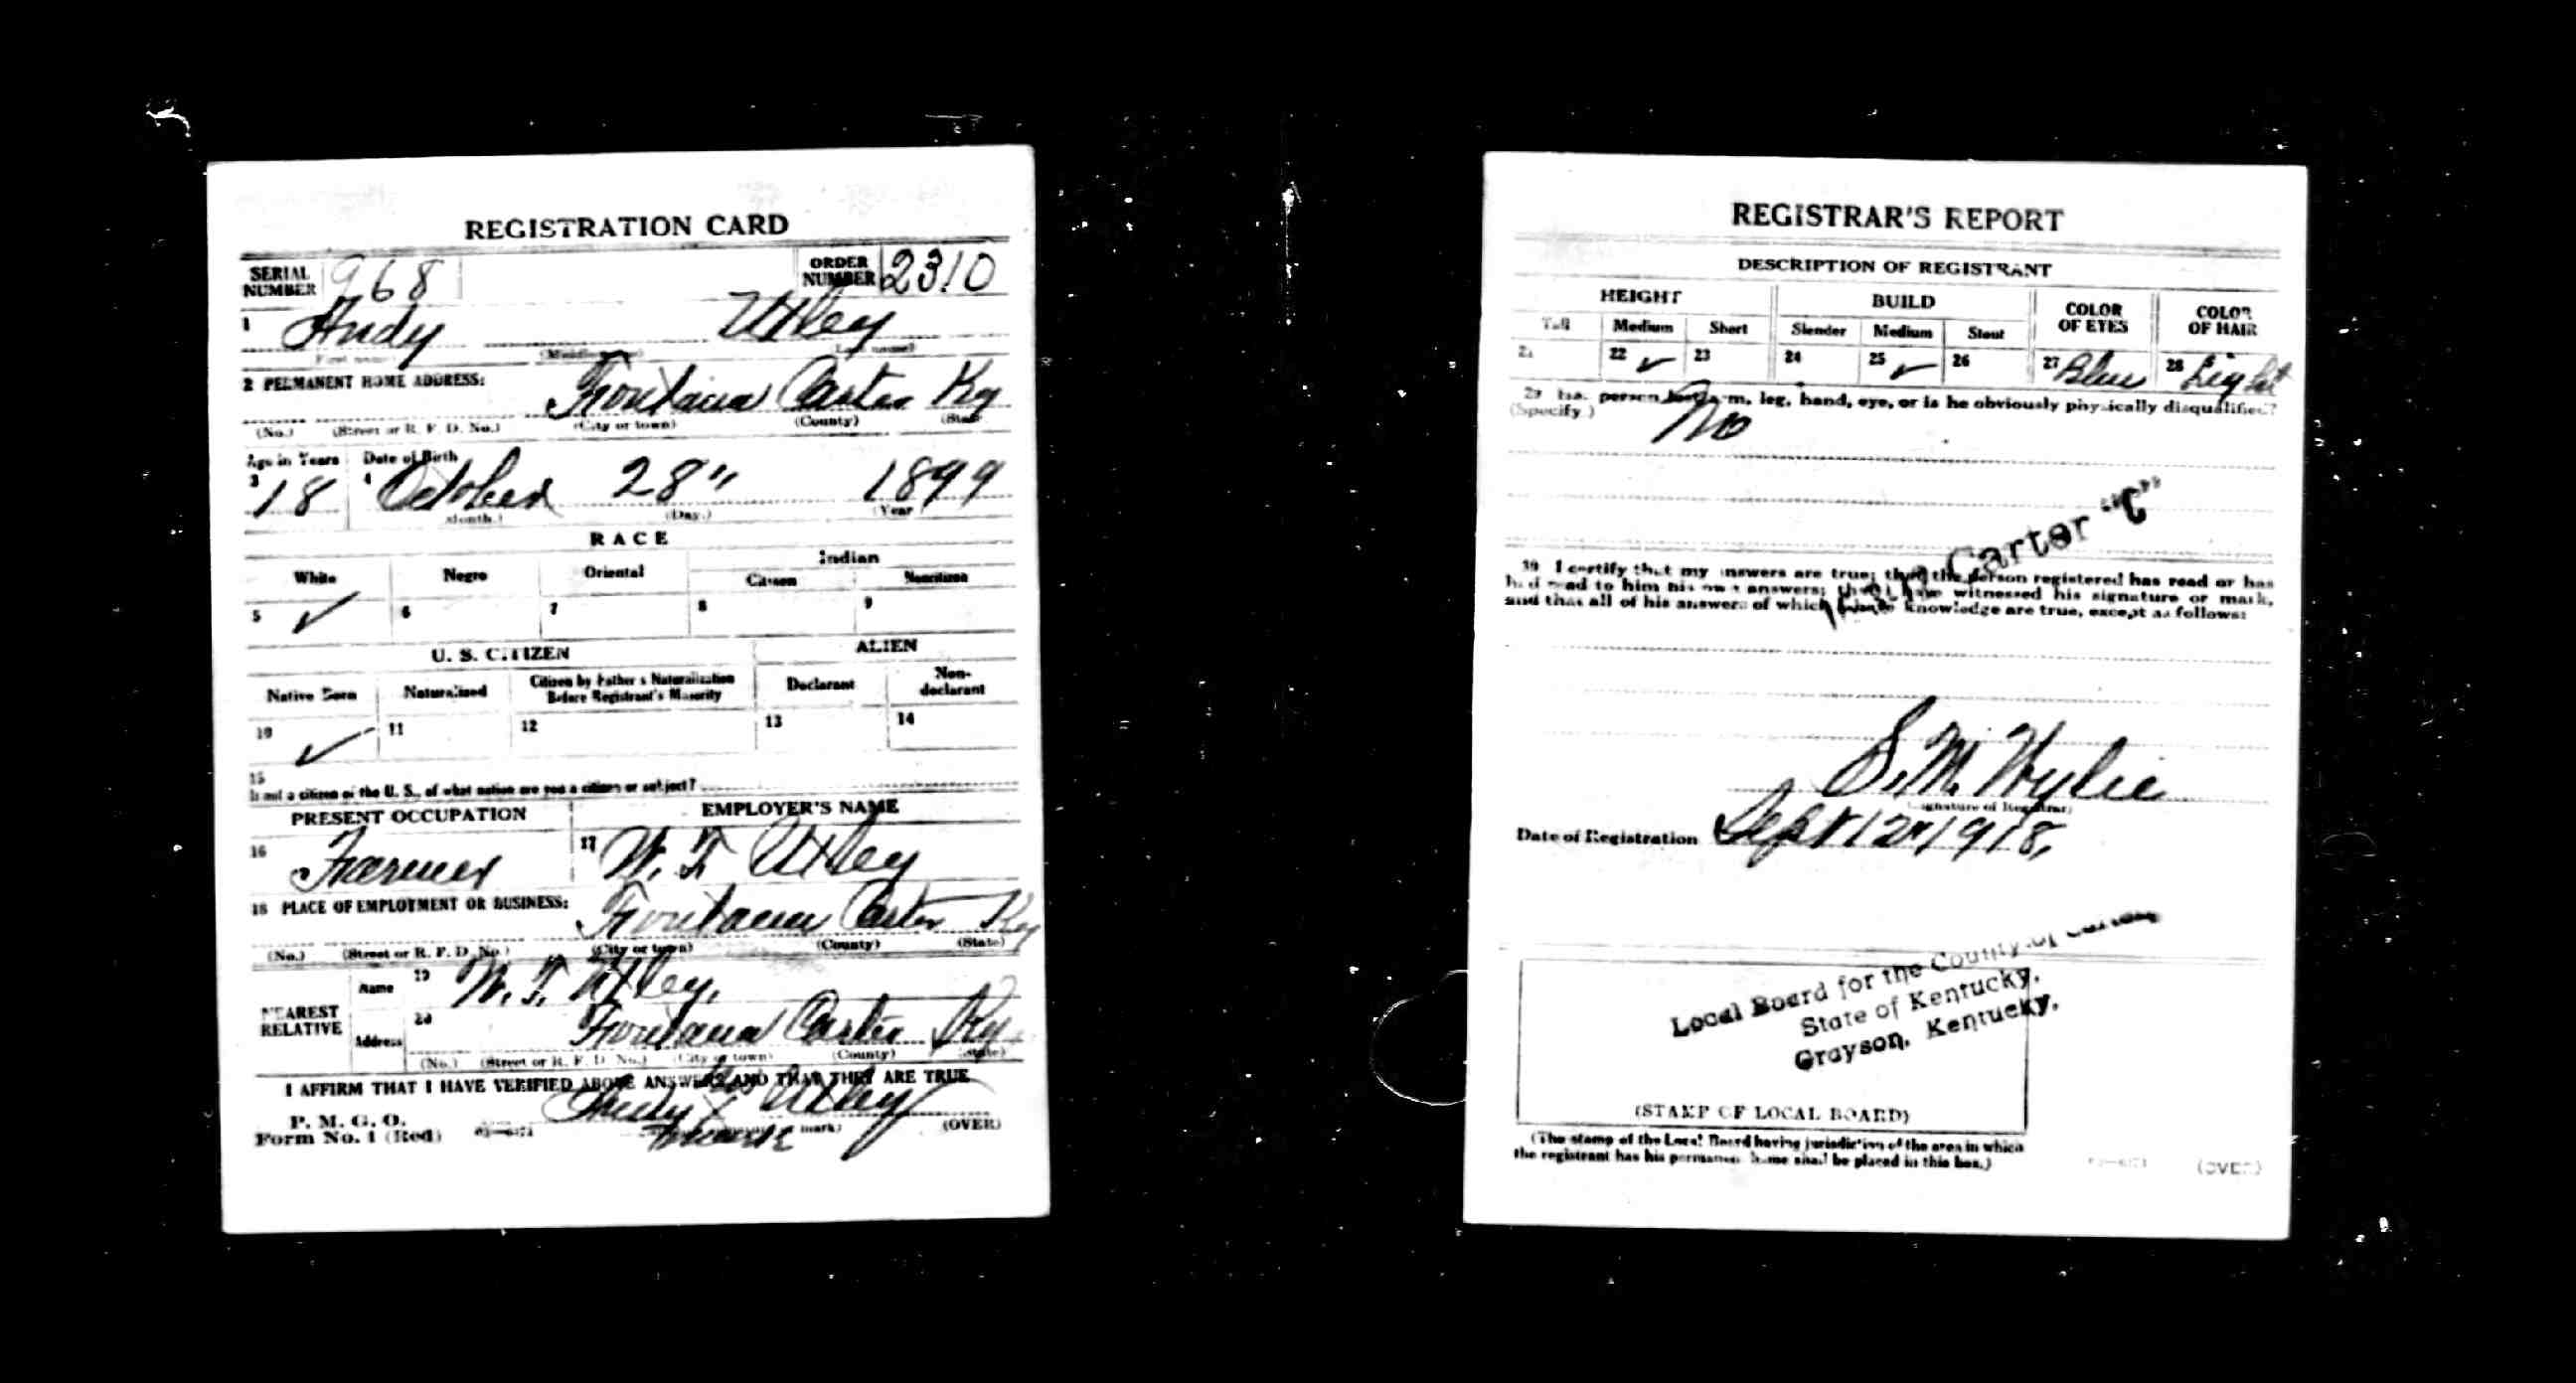 REGISTRATION CARD
SERIAL NUMBER 968 ORDER NUMBER 2310
1 Andy Utley
(Middle name) (Last name)
2 PERMANENT HOME ADDRESS:
Fontana Carter Ky
(No.) (Street or R. F. D. No.) (City or town) (County) (State)
Age in Years Date of Birth
3 18 4 October 28" 1899
(Month.) (Day.) (Year
RACE
White Negro Oriental Indian
Citizen Noncitizen
5 ✓ 6 7 8 9
U. S. CITIZEN ALIEN
Native Born Naturalized Citizen by Father's Naturalization Before Registrant's Majority Declarant Non-declarant
10 ✓ 11 12 13 14
15
If not a citizen of the U. S., of what nation are you a citizen or subject?
PRESENT OCCUPATION EMPLOYER'S NAME
16 Farmer 17 W. T. Utley
18 PLACE OF EMPLOYMENT OR BUSINESS:
Fontana Carter Ky
(No.) (Street or R. F. D. No.) (City or town) (County) (State)
NEAREST RELATIVE
Name 19 W. T. Utley,
Address 20 Fontana Carter Ky
(No.) (Street or R. F. D. No.) (City or town) (County) (State)
I AFFIRM THAT I HAVE VERIFIED ABOVE ANSWERS AND THAT THEY ARE TRUE
his
Andy X Utley
mark
P. M. G. O.
Form No. 1 (Red) mark) (OVER)
REGISTRAR'S REPORT
DESCRIPTION OF REGISTRANT
HEIGHT BUILD COLOR OF EYES COLOR OF HAIR
Tall Medium Short Slender Medium Stout
21 22 ✓ 23 24 25 ✓ 26 27 Blue 28 Light
29 Has person lost arm, leg, hand, eye, or is he obviously physically disqualified?
(Specify.) No
Carter "C"
30 I certify that my answers are true; that the person registered has read or has
had read to him his own answers; that I have witnessed his signature or mark,
and that all of his answers of which I have knowledge are true, except as follows:
S. M. Wylie
(Signature of Registrar)
Date of Registration Sept 12" 1918,
Local Board for the County of Carter,
State of Kentucky,
Grayson, Kentucky.
(STAMP OF LOCAL BOARD)
(The stamp of the Local Board having jurisdiction of the area in which
the registrant has his permanent home shall be placed in this box.)
(OVER)